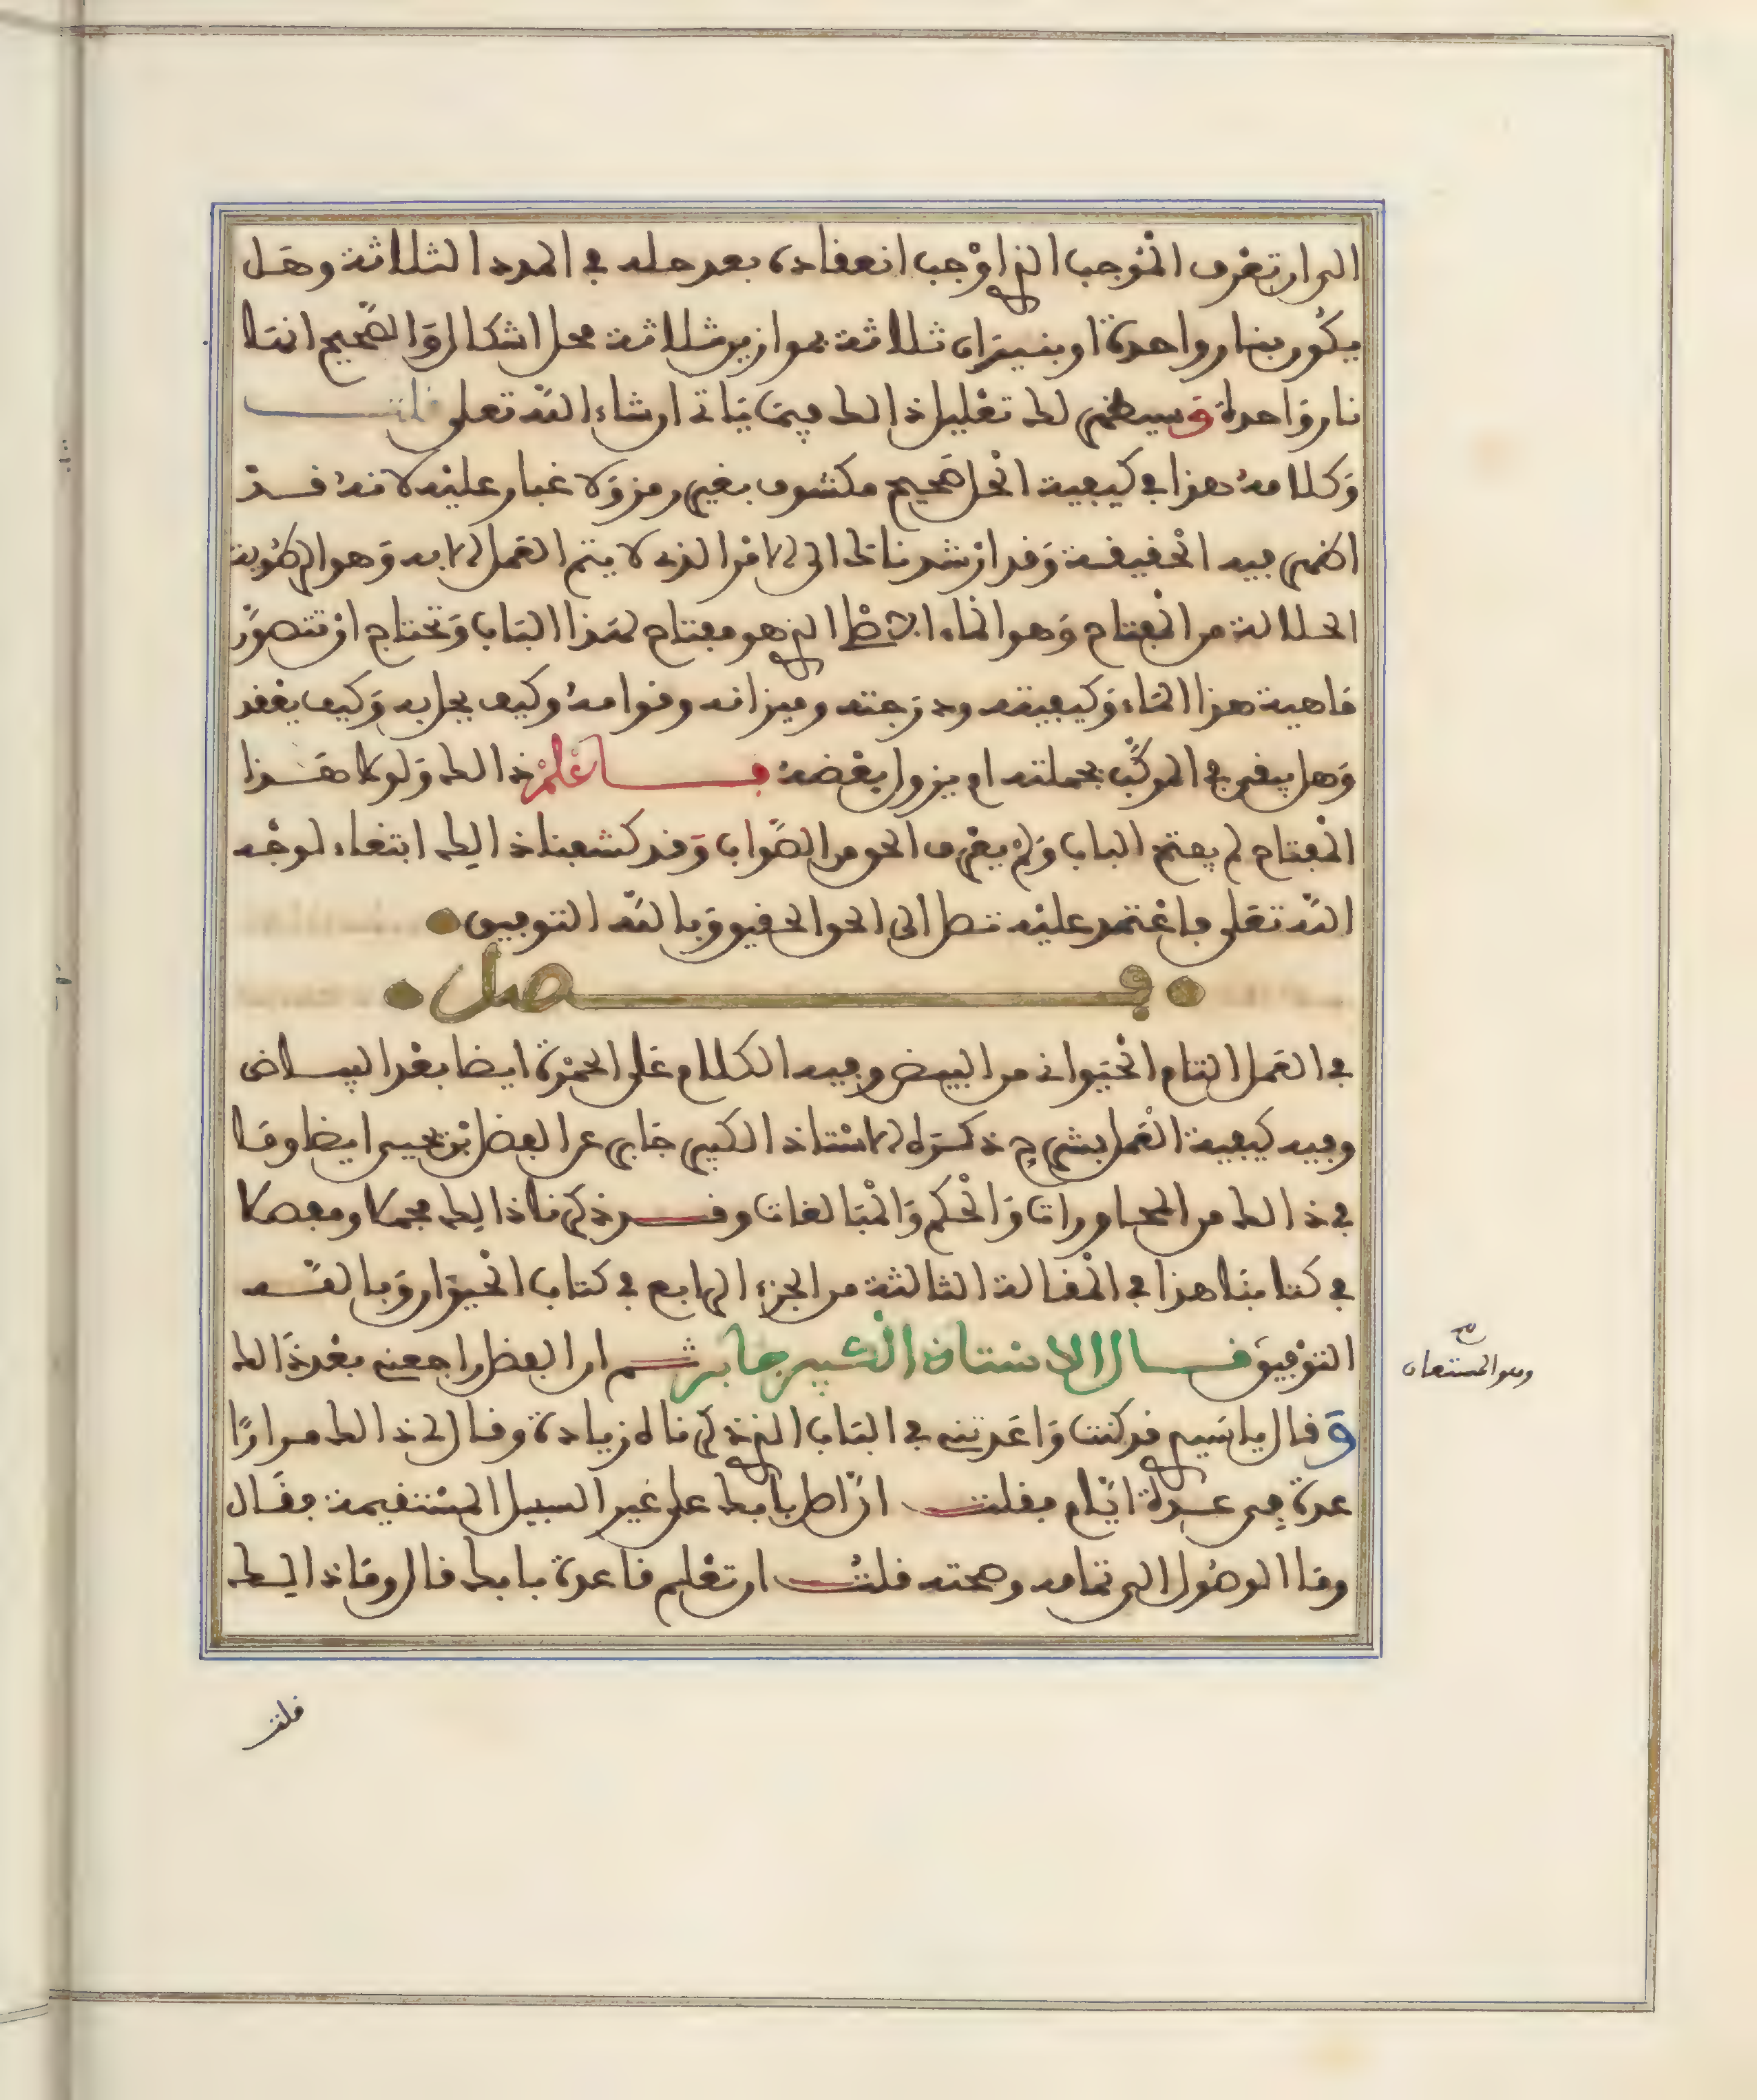 الى ان تعرف الموجب الذي اوجب انعقاده بعد حله في المدد الثلاثة وهل
يكون بنار واحدة او بنيران ثلاثة بموازين ثلاثة محل اشكال والصحيح انها
نار واحدة وسيظهر لك تعليل ذالك فيما ياتي ان شاء الله تعلى قلت
وكلامه هذا في كيفية الحل صحيح مكشوف بغير رمز ولا غبار عليه لانه قد
اظهر فيه الحقيقة وقد ارشدناك الى الامر الذي لا يتم العمل الا به وهو الرطوبة
الحلالة من المفتاح وهو الماء الذي هو مفتاح لهذا الباب وتحتاج ان تتصور
ماهية هذا الماء وكيفيته ودرجته وميزانه وقوامه وكيف يحل به وكيف يعقد
وهل يبقى في المركب بجملته او يزول بعضه فاعلم ذالك ولولا هذا
المفتاح لم يفتح الباب ولم يعرف الحق من الصواب وقد كشفنا ذالك ابتغاء لوجه
الله تعلى فاعتمد عليه تصل الى الحق الحقيق وبالله التوفيق
فصل
في العمل التام الحيواني من البيض وفيه الكلام على الحمرة ايضا بعد البياض
وفيه كيفية العمل بشرح ذكره الاستاذ الكبير جابر عن الفضل بن يحيى ايضا وما
في ذالك من المحاورات والحكم والمبالغات وقد ذكرنا ذالك مجملا ومفصلا
في كتابنا هذا في المقالة الثالثة من الجزء الرابع في كتاب الحيوان وبالله
التوفيق قال الاستاذ الكبير جابر ثم ان الفضل راجعني بعد ذالك
وهو المستعان صح
وقال يا سيدي قد كنت واعدتني في الباب الذي ذكرناه زيادة وقال لي ذالك مرارا
عدة في عدة ايام فقلت ان اطبابك على غير السبيل المستقيمة فقال
وما الوصول الى تمامه وصحته قلت ان تعلم قاعدة بابك قال وما ذالك
قلت